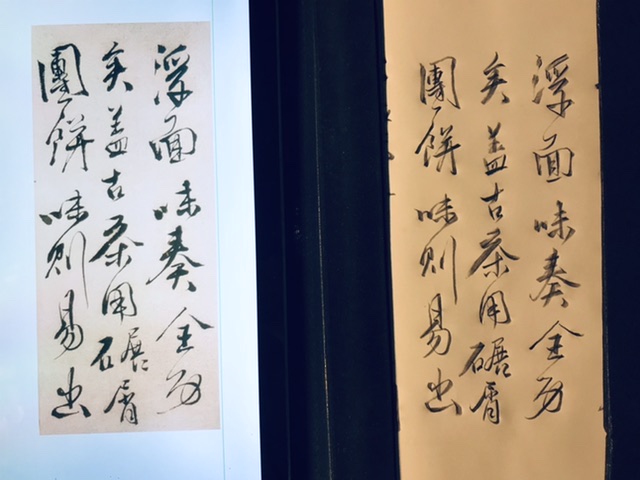 浮面味奏全功
矣盖古茶用碾屑
團餅味则易出
浮面味奏全功
矣盖古茶用碾屑
團餅味则易出